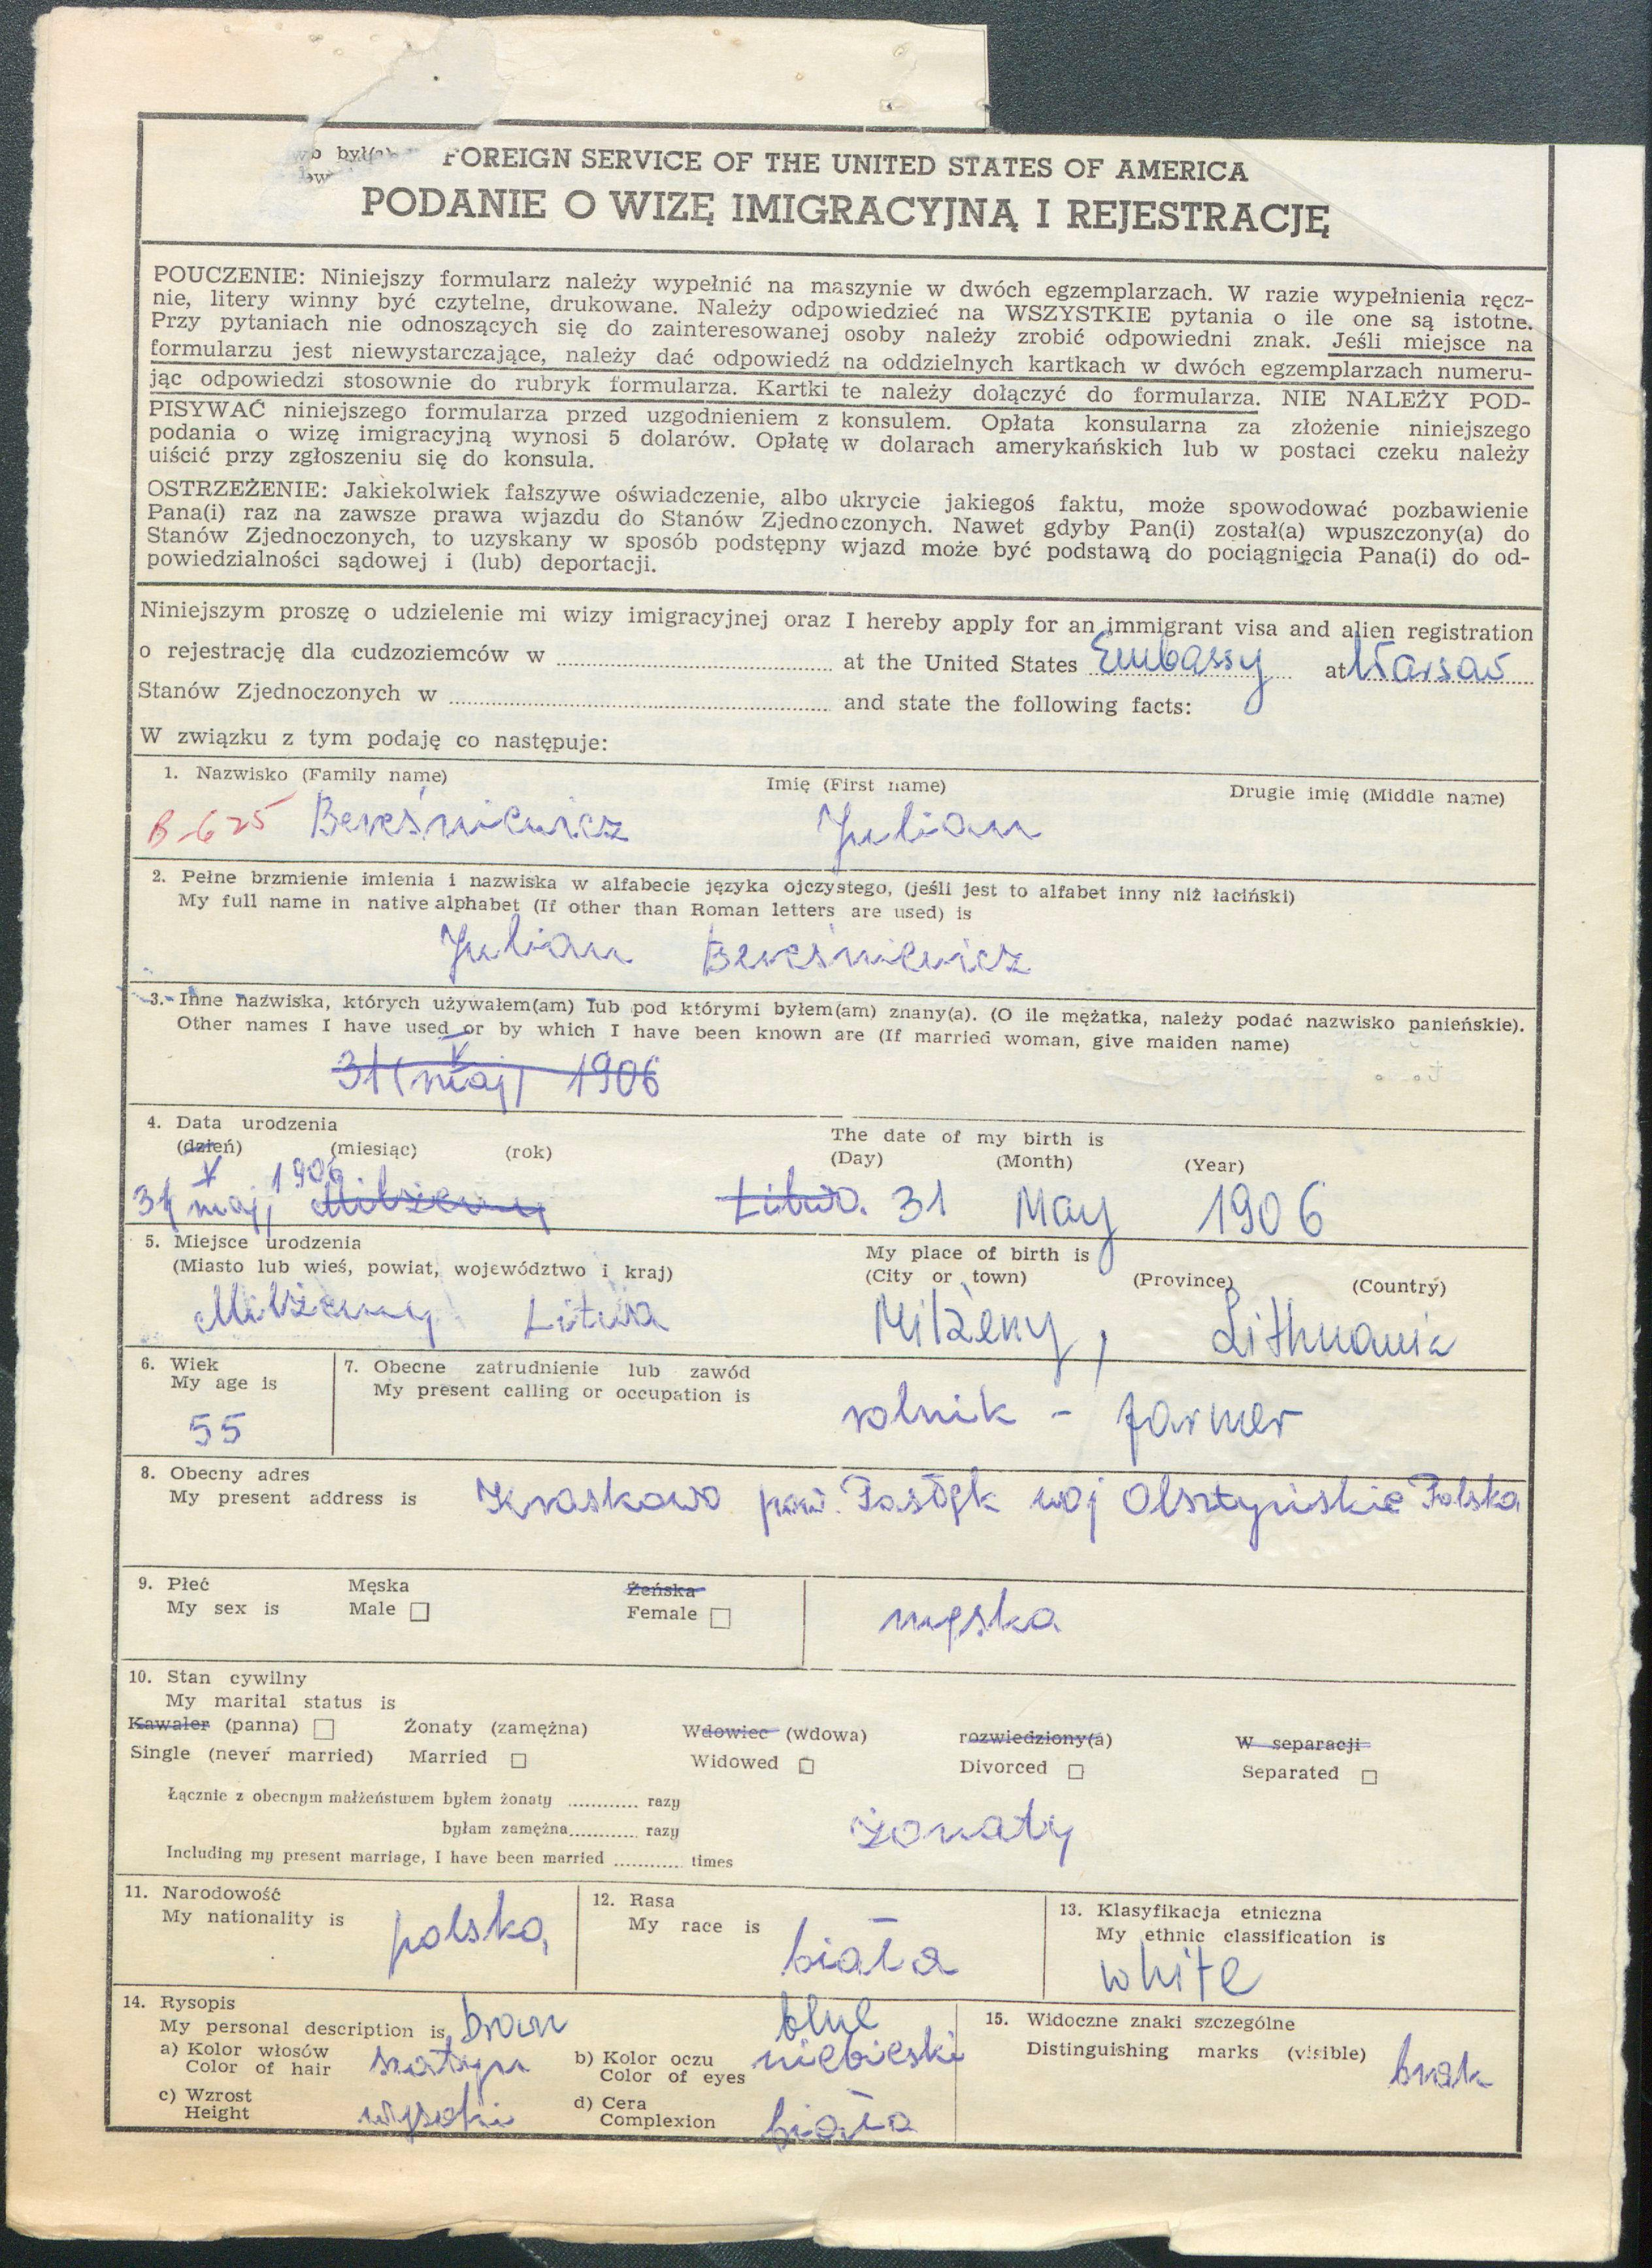 FOREIGN SERVICE OF THE UNITED STATES OF AMERICA
PODANIE O WIZĘ IMIGRACYJNĄ I REJESTRACJĘ
POUCZENIE: Niniejszy formularz należy wypełnić na maszynie w dwóch egzemplarzach. W razie wypełnienia ręcz-
nie, litery winny być czytelne, drukowane. Należy odpowiedzieć na WSZYSTKIE pytania o ile one są istotne.
Przy pytaniach nie odnoszących się do zainteresowanej osoby należy zrobić odpowiedni znak. Jeśli miejsce na
formularzu jest niewystarczające, należy dać odpowiedź na oddzielnych kartkach w dwóch egzemplarzach numeru-
jąc odpowiedzi stosownie do rubryk formularza. Kartki te należy dołączyć do formularza. NIE NALEŻY POD-
PISYWAĆ niniejszego formularza przed uzgodnieniem z konsulem. Opłata konsularna za złożenie niniejszego
podania o wizę imigracyjną wynosi 5 dolarów. Opłatę w dolarach amerykańskich lub w postaci czeku należy
uiścić przy zgłoszeniu się do konsula.
OSTRZEŻENIE: Jakiekolwiek fałszywe oświadczenie, albo ukrycie jakiegoś faktu, może spowodować pozbawienie
Pana(i) raz na zawsze prawa wjazdu do Stanów Zjednoczonych. Nawet gdyby Pan(i) został(a) wpuszczony(a) do
Stanów Zjednoczonych, to uzyskany w sposób podstępny wjazd może być podstawą do pociągnięcia Pana(i) do od-
powiedzialności sądowej i (lub) deportacji.
Niniejszym proszę o udzielenie mi wizy imigracyjnej oraz I hereby apply for an immigrant visa and alien registration
o rejestrację dla cudzoziemców w ........ at the United States Embassy at Warsaw
Stanów Zjednoczonych w ........ and state the following facts:
W związku z tym podaję co następuje:
1. Nazwisko (Family name) Imię (First name) Drugie imię (Middle name)
B-625 Bereśniewicz Julian
2. Pełne brzmienie imienia i nazwiska w alfabecie języka ojczystego, (jeśli jest to alfabet inny niż łaciński)
My full name in native alphabet (If other than Roman letters are used) is
Julian Bereśniewicz
3. Inne nazwiska, których używałem(am) lub pod którymi byłem(am) znany(a). (O ile mężatka, należy podać nazwisko panieńskie).
Other names I have used or by which I have been known are (If married woman, give maiden name)
31 V (maj) 1906
4. Data urodzenia The date of my birth is
(dzień) (miesiąc) (rok) (Day) (Month) (Year)
31 V maj, 1906 Milżeny Litwa. 31 May 1906
5. Miejsce urodzenia My place of birth is
(Miasto lub wieś, powiat, województwo i kraj) (City or town) (Province) (Country)
Milżeny Litwa Milżeny, Lithuania
6. Wiek 7. Obecne zatrudnienie lub zawód
My age is My present calling or occupation is
55 rolnik - farmer
8. Obecny adres
My present address is Kraskowo pow. Pasłęk woj Olsztyńskie Polska
9. Płeć Męska Żeńska
My sex is Male Female męska
10. Stan cywilny
My marital status is
Kawaler (panna) Żonaty (zamężna) Wdowiec (wdowa) rozwiedziony(a) W separacji
Single (never married) Married Widowed Divorced Separated
Łącznie z obecnym małżeństwem byłem żonaty ............ razy
byłam zamężna............ razy żonaty
Including my present marriage, I have been married ............ times
11. Narodowość 12. Rasa 13. Klasyfikacja etniczna
My nationality is polska, My race is biała My ethnic classification is
white
14. Rysopis 15. Widoczne znaki szczególne
My personal description is brown blue Distinguishing marks (visible) brak
a) Kolor włosów szatyn b) Kolor oczu niebieski
Color of hair Color of eyes
c) Wzrost wysoki d) Cera biała
Height Complexion